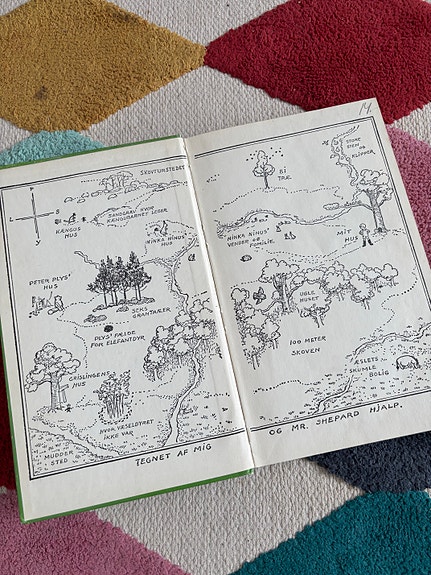 SKOVTURSTEDET
P
L
S
Y
KÆNGUS
HUS
SANDGRAV HVOR
KÆNGUBARNET LEGER
NINKA NINUS'
HUS
PETER PLYS'
HUS
SEKS
GRANTRÆER
PLYS' FÆLDE
FOR ELEFANTDYR
GRISLINGENS
HUS
HVOR VÆSELDYRET
IKKE VAR
MUDDER
STED
TEGNET AF MIG
14
STORE
STEN OG
KLIPPER
BI
TRÆ
NINKA NINUS'
VENNER OG
FAMILIE
MIT
HUS
UGLE
HUSET
100 METER
SKOVEN
ÆSLETS
SKUMLE
BOLIG
OG MR. SHEPARD HJALP.